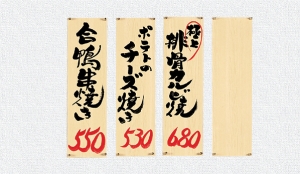 合鴨串焼き
550
ポテトの
チーズ焼き
530
極上
排骨カルビ焼
680